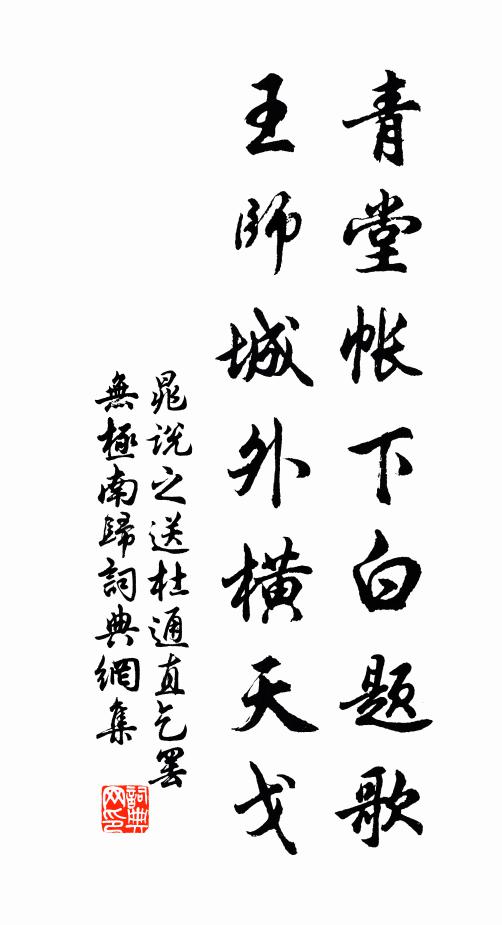 青堂帐下白题歌
王師城外橫天戈
晁说之送杜通直乞罢
無極南歸詞典網集
詞典网印